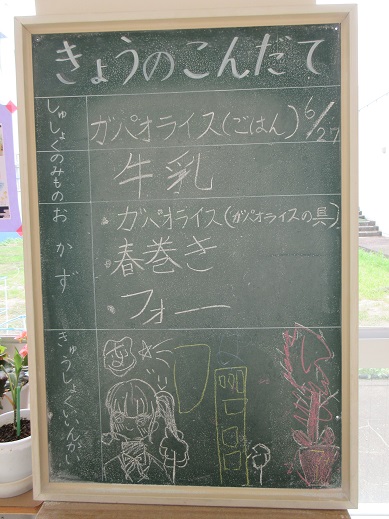 きょうのこんだて
しゅしょく
ガパオライス(ごはん)
6/27
のみもの
牛乳
おかず
・ガパオライス(ガパオライスの具)
・春巻き
・フォー
きゅうしょくいいんかい